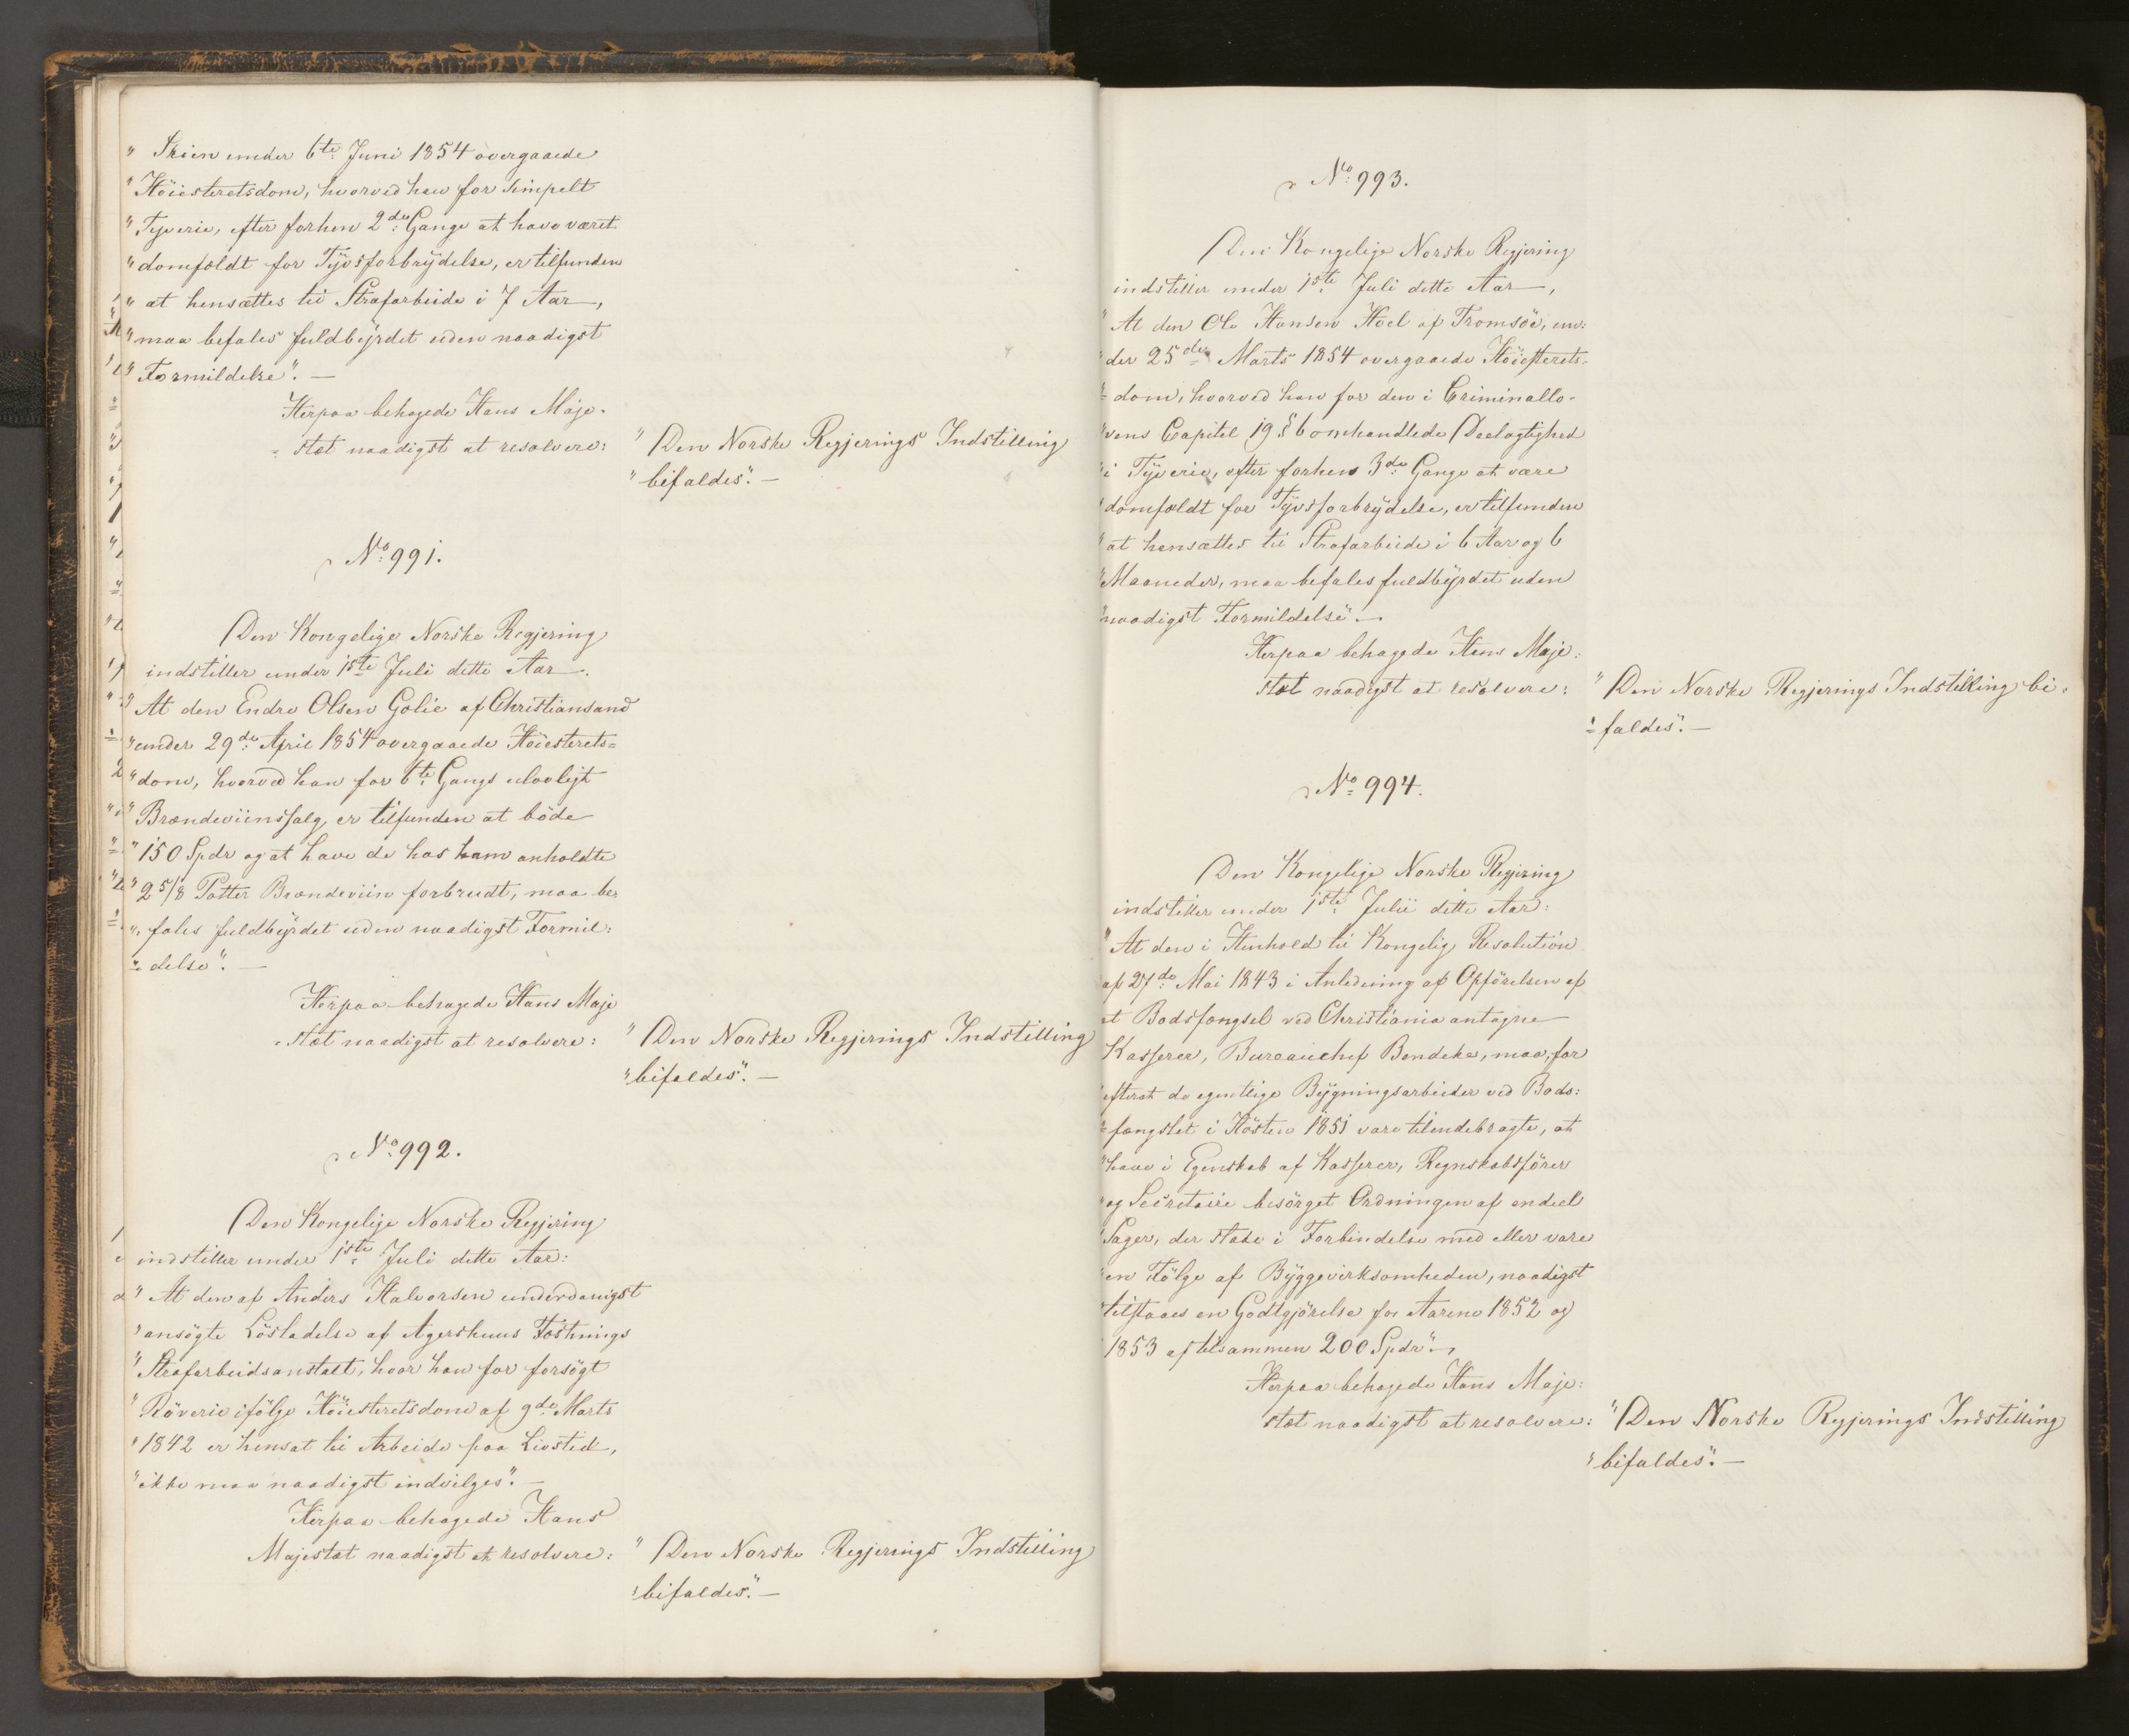 " Skien under 6te Juni 1854 overgaaede
" Höiesteretsdom, hvorved han for simpelt
" Tyverie, efter forhen 2de Gange at have været
" domfældt for Tyvsforbrydelse, er tilfunden
" at hensættes til Strafarbeide i 7 Aar,
" maa befales fuldbyrdet uden naadigst
" Formildelse". —
Herpaa behagede Hans Maje-
stæt naadigst at resolvere:
" Den Norske Regjerings Indstilling
" bifaldes". —
No 991.
Den Kongelige Norske Regjering
indstiller under 1ste Juli dette Aar.
" At den Endre Olsen Golie af Christiansand
" under 29de April 1854 overgaaede Höiesterets=
" dom, hvorved han for 6te Gangs ulovligt
" Brændeviinssalg er tilfunden at böde
" 150 Spdr og at have de hos ham anholdte
" 2 5/8 Potter Brændeviin forbrudt, maa be-
" fales fuldbyrdet uden naadigst Formil:
" delse". —
Herpaa behagede Hans Maje
stæt naadigst at resolvere:
" Den Norske Regjerings Indstilling
" bifaldes". —
No 992.
Den Kongelige Norske Regjering
indstiller under 1ste Juli dette Aar:
" At den af Anders Halvorsen underdanigst
" ansögte Lösladelse af Agershuus Fæstnings
" Strafarbeidsanstalt, hvor han for forsögt
" Röverie ifölge Höiesteretsdom af 9de Marts
" 1842 er hensat til Arbeide paa Livstid,
" ikke maa naadigst indvilges". —
Herpaa behagede Hans
Majestæt naadigst at resolvere:
" Den Norske Regjerings Indstilling
" bifaldes". —
No 993.
Den Kongelige Norske Regjering
indstiller under 1ste Juli dette Aar,
" At den Ole Hansen Hoel af Tromsöe, un:
" der 25de Marts 1854 overgaaede Höiesterets-
" dom, hvorved han for den i Criminallo-
" vens Capitel 19 § 6 omhandlede Deelagtighed
" i Tyverie, efter forhen 3de Gange at være
" domfældt for Tyvsforbrydelse, er tilfunden
" at hensættes til Strafarbeide i 6 Aar og 6
" Maaneder, maa befales fuldbyrdet uden
" naadigst Formildelse". —
Herpaa behagede Hans Maje:
stæt naadigst at resolvere:
" Den Norske Regjerings Indstilling bi-
" faldes". —
No 994.
Den Kongelige Norske Regjering
indstiller under 1ste Julii dette Aar:
" At den i Henhold til Kongelig Resolution
af 27de Mai 1843 i Anledning af Opförelsen af
et Bodsfængsel ved Christiania antagne
Kasserer, Bureauchef Bendeke, maa, for
efterat de egentlige Bygningsarbeider ved Bods:
" fængslet i Hösten 1851 vare tilendebragte, at
" have i Egenskab af Kasserer, Regnskabsförer
" og Secretaire besörget Ordningen af endeel
Sager, der stode i Forbindelse med eller vare
" en Fölge af Byggevirksomheden, naadigst
" tilstaaes en Godtgjörelse for Aarene 1852 og
1853 af tilsammen 200 Spdr". —
Herpaa behagede Hans Maje:
stæt naadigst at resolvere:
" Den Norske Regjerings Indstilling
" bifaldes". —